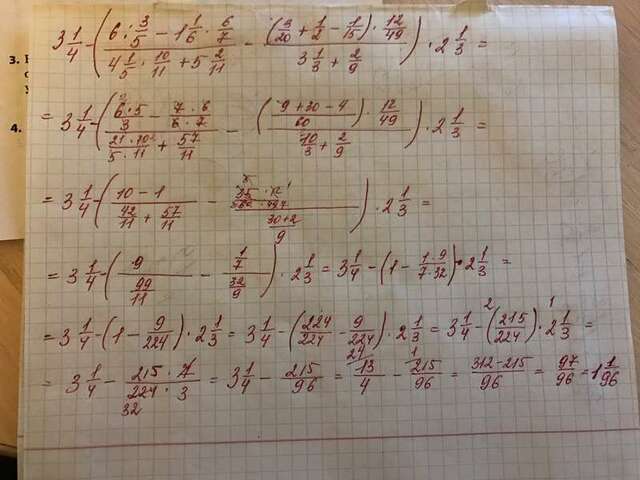 3.
4.
3 1/4 - ( (6 : 3/5 - 1 1/6 · 6/7) / (4 1/5 · 10/11 + 5 2/11) - ((3/20 + 1/2 - 1/15) · 12/49) / (3 1/3 + 2/9) ) · 2 1/3 =
= 3 1/4 - ( (6·5/3 - 7·6/6·7) / (21·10/5·11 + 57/11) - ((9+30-4)/60 · 12/49) / (10/3 + 2/9) ) · 2 1/3 =
= 3 1/4 - ( (10-1) / (42/11 + 57/11) - (35·12/60·49) / ((30+2)/9) ) · 2 1/3 =
= 3 1/4 - ( 9 / (99/11) - (1/7) / (32/9) ) · 2 1/3 = 3 1/4 - (1 - 1·9/7·32) · 2 1/3 =
= 3 1/4 - (1 - 9/224) · 2 1/3 = 3 1/4 - (224/224 - 9/224) · 2 1/3 = 3 1/4 - (215/224) · 2 1/3 =
= 3 1/4 - 215·7/224·3 = 3 1/4 - 215/96 = 13/4 - 215/96 = (312-215)/96 = 97/96 = 1 1/96